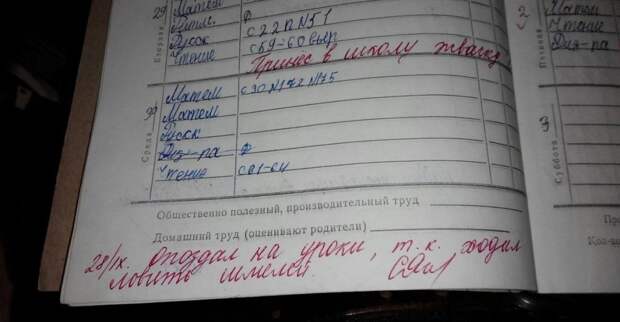 29
Матем
Англ. ф
Русск с 22 п N 51
Чтение с 59-60 выр
Вторник
Принёс в школу жвачку
30
Матем с 30 N 172 N 175
Матем
Русск
Физ-ра ф
Чтение с 61-64
Среда
Общественно полезный, производительный труд
Домашний труд (оценивают родители)
28/IX. Опоздал на уроки, т.к. ходил
ловить шмелей.
2
Матем
Чтение
Физ-ра
Пятница
3
Суббота
Кол-во